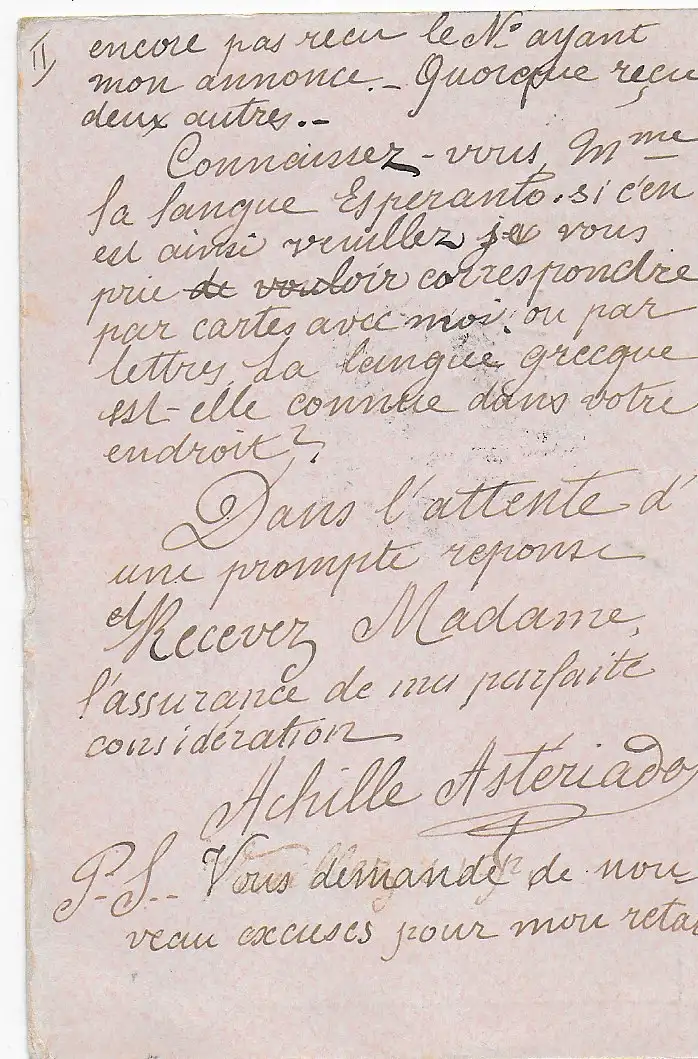 II) encore pas recu le N° ayant
mon annonce. – Quoique reçu
deux autres. –
Connaissez-vous, Mme
la langue Esperanto. si c'en
est ainsi veuillez je vous
prie de vouloir correspondre
par cartes avec moi, ou par
lettres, La langue grecque
est-elle connue dans votre
endroit?
Dans l'attente d'
une prompte reponse
et Recevez Madame,
l'assurance de ma parfaite
considération
Achille Astériado
P.S.. Vous demande de nou-
veau excuses pour mon reta